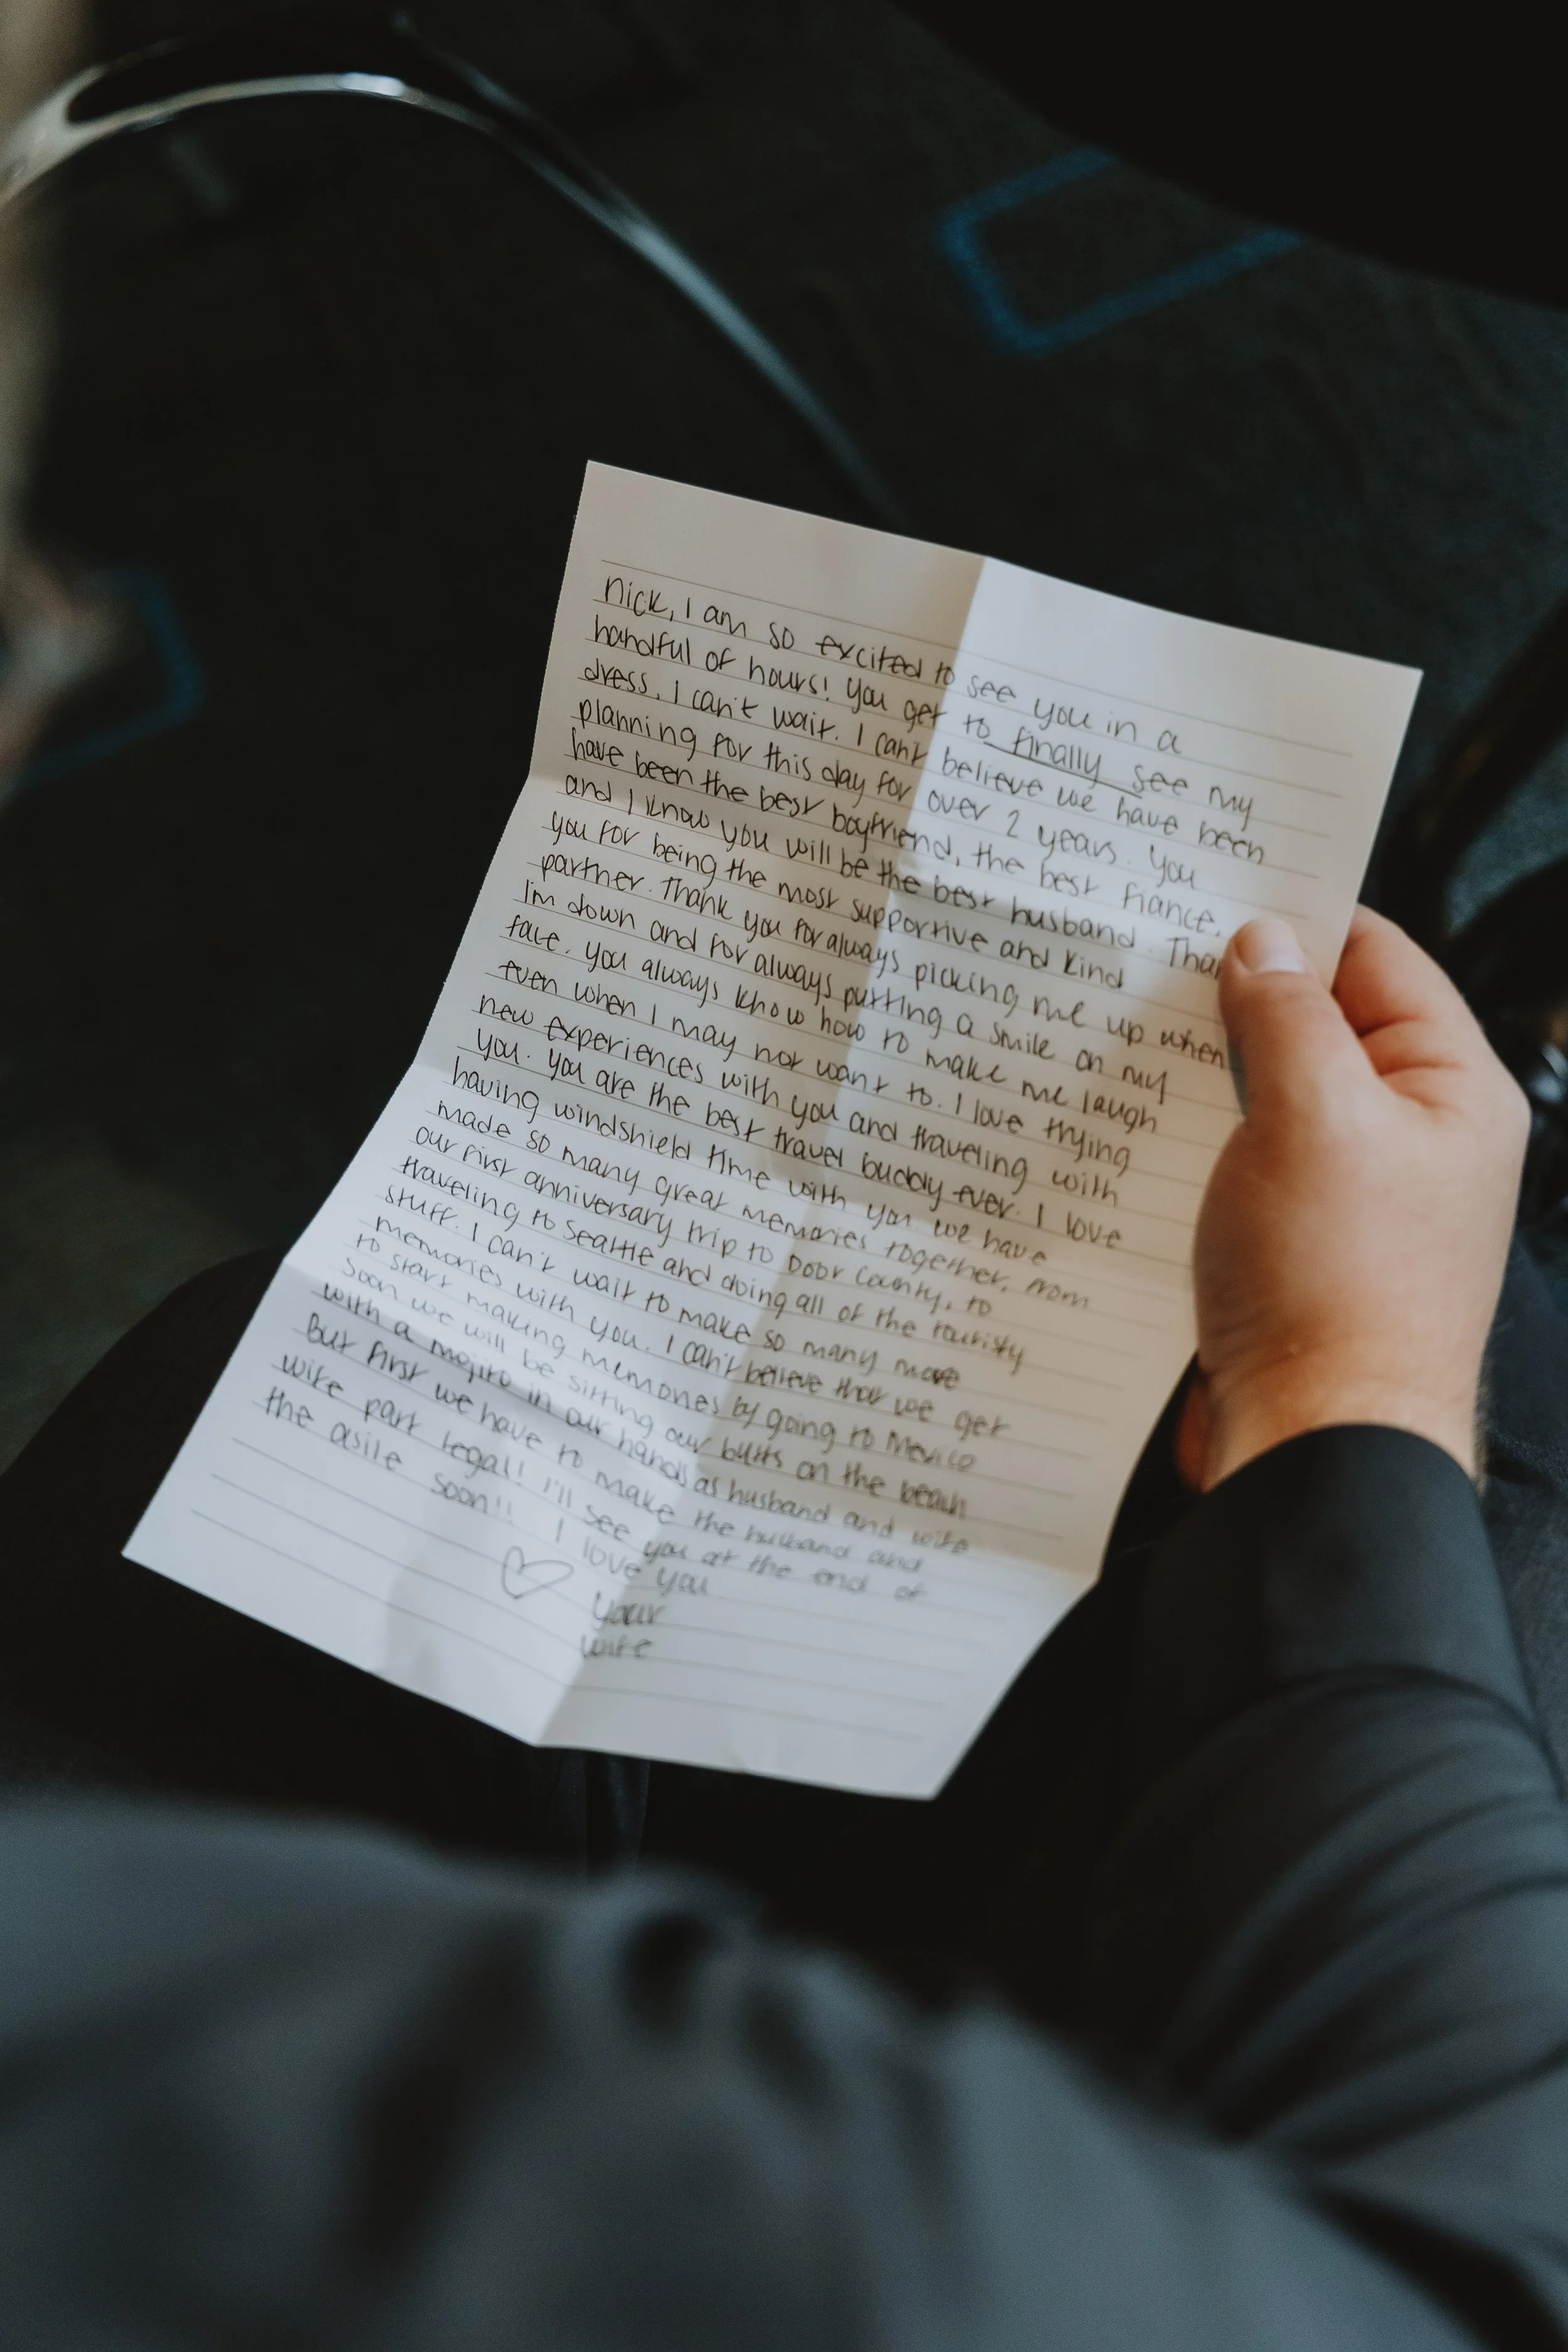 Nick, I am so excited to see you in a
handful of hours! You get to finally see my
dress, I can't wait. I can't believe we have been
planning for this day for over 2 years. You
have been the best boyfriend, the best fiance,
and I know you will be the best husband. Than
you for being the most supportive and kind
partner. Thank you for always picking me up when
I'm down and for always putting a smile on my
face. You always know how to make me laugh
even when I may not want to. I love trying
new experiences with you and traveling with
you. You are the best travel buddy ever. I love
having windshield time with you. We have
made so many great memories together, from
our first anniversary trip to Door County, to
traveling to Seattle and doing all of the touristy
stuff. I can't wait to make so many more
memories with you. I can't believe that we get
to start making memories by going to Mexico
soon we will be sitting our butts on the beach
with a mojito in our hands as husband and wife
But first we have to make the husband and
wife part legal! I'll see you at the end of
the asile soon!! I love you
your
wife